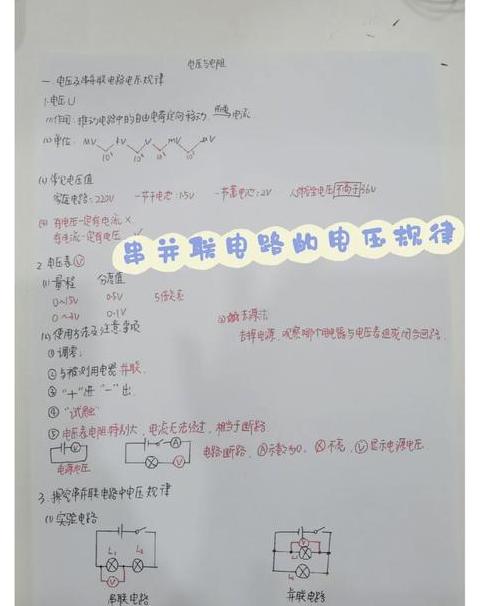 电压与电阻
一、电压及串并联电路电压规律
1.电压U
(1)作用：推动电路中的自由电荷定向移动，形成电流
(2)单位： MV kV V mV μV
10³ 10³ 10³ 10³
(3)常见电压值
家庭电路：220V 一节干电池：1.5V 一节蓄电池：2V 人体安全电压不高于36V
(4)有电压一定有电流 ×
有电流一定有电压 √
串并联电路的电压规律
2.电压表Ⓥ
(1)量程 分度值
0~15V 0.5V 5倍关系
0~3V 0.1V
(2)使用方法及注意事项
去掉电源，观察哪个用电器与电压表组成闭合回路.
①调零：
②与被测用电器并联.
③“+”进“-”出.
④“试触”
⑤电压表电阻特别大，电流无法经过，相当于断路.
电源电压
电路断路，Ⓐ示数为0，⊗不亮，Ⓥ显示电源电压.
3.探究串并联电路中电压规律
(1)实验电路
L₁ L₂
V
串联电路
V
L₁
L₂
并联电路